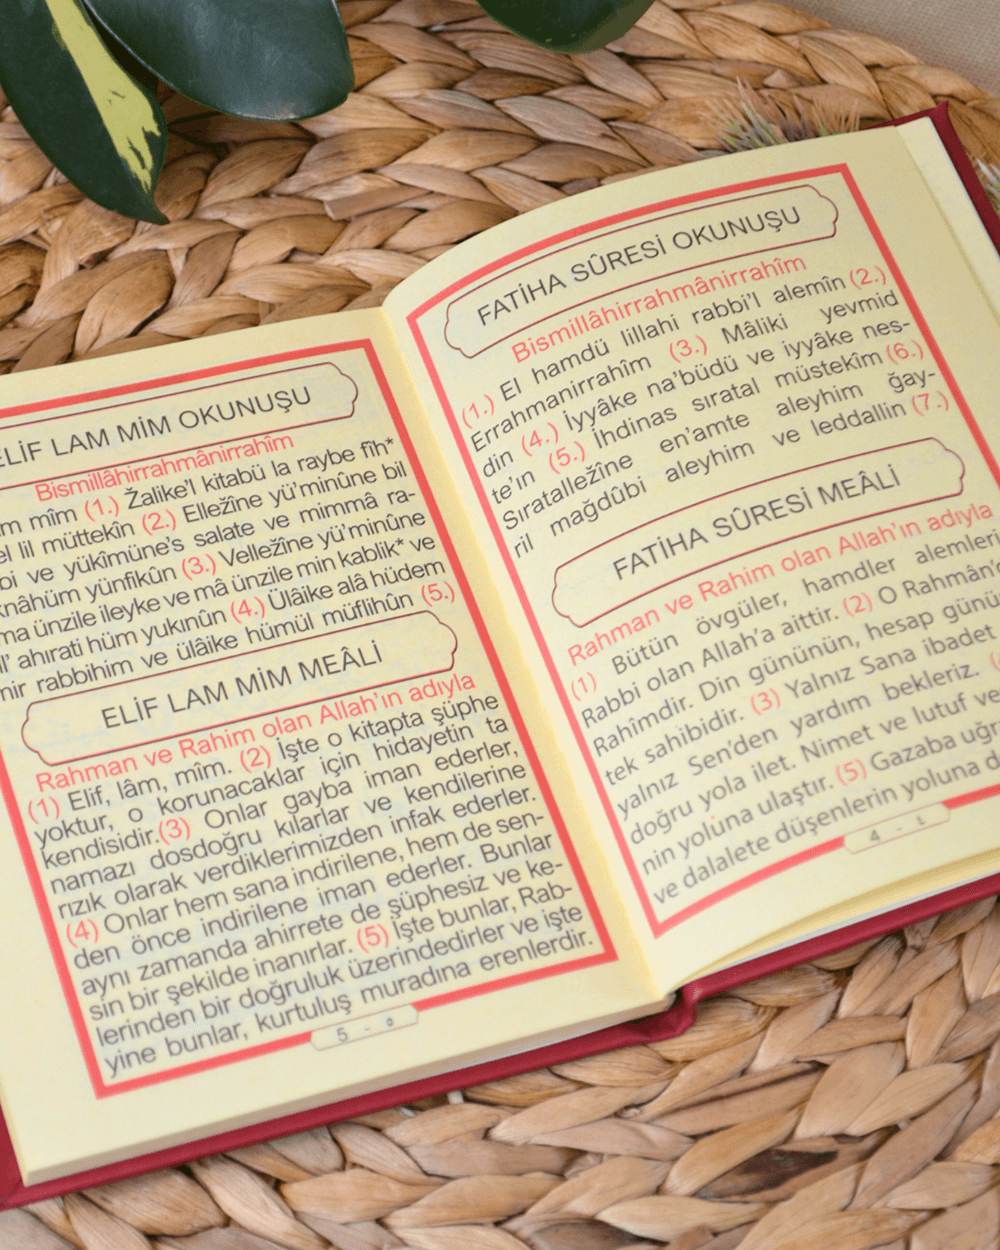 FATİHA SÛRESİ OKUNUŞU
Bismillâhirrahmânirrahîm
(1.) El hamdü lillahi rabbi'l alemîn (2.)
Errahmanirrahîm (3.) Mâliki yevmid
din (4.) İyyâke na'büdü ve iyyâke nes-
te'ın (5.) İhdinas sıratal müstekîm (6.)
Sıratalležîne en'amte aleyhim ğay-
ril mağdûbi aleyhim ve leddallin (7.)
FATİHA SÛRESİ MEÂLİ
Rahman ve Rahim olan Allah'ın adıyla
(1) Bütün övgüler, hamdler alemleri
Rabbi olan Allah'a aittir. (2) O Rahmân'
Rahîmdir. Din gününün, hesap günü
tek sahibidir. (3) Yalnız Sana ibadet
yalnız Sen'den yardım bekleriz.
doğru yola ilet. Nimet ve lutuf ve
nin yoluna ulaştır. (5) Gazaba uğr
ve dalalete düşenlerin yoluna d
4 - ٤
ELİF LAM MİM OKUNUŞU
Bismillâhirrahmânirrahîm
m mîm (1.) Žalike'l kitabü la raybe fîh*
el lil müttekîn (2.) Elležîne yü'minûne bil
bi ve yükîmüne's salate ve mimmâ ra-
knâhüm yünfikûn (3.) Velležîne yü'minûne
ma ünzile ileyke ve mâ ünzile min kablik* ve
l' ahırati hüm yukınûn (4.) Ülâike alâ hüdem
mir rabbihim ve ülâike hümül müflihûn (5.)
ELİF LAM MİM MEÂLİ
Rahman ve Rahim olan Allah'ın adıyla
(1) Elif, lâm, mîm. (2) İşte o kitapta şüphe
yoktur, o korunacaklar için hidayetin ta
kendisidir.(3) Onlar gayba iman ederler,
namazı dosdoğru kılarlar ve kendilerine
rızık olarak verdiklerimizden infak ederler.
(4) Onlar hem sana indirilene, hem de sen-
den önce indirilene iman ederler. Bunlar
aynı zamanda ahirrete de şüphesiz ve ke-
sin bir şekilde inanırlar. (5) İşte bunlar, Rab-
lerinden bir doğruluk üzerindedirler ve işte
yine bunlar, kurtuluş muradına erenlerdir.
5 - ٥